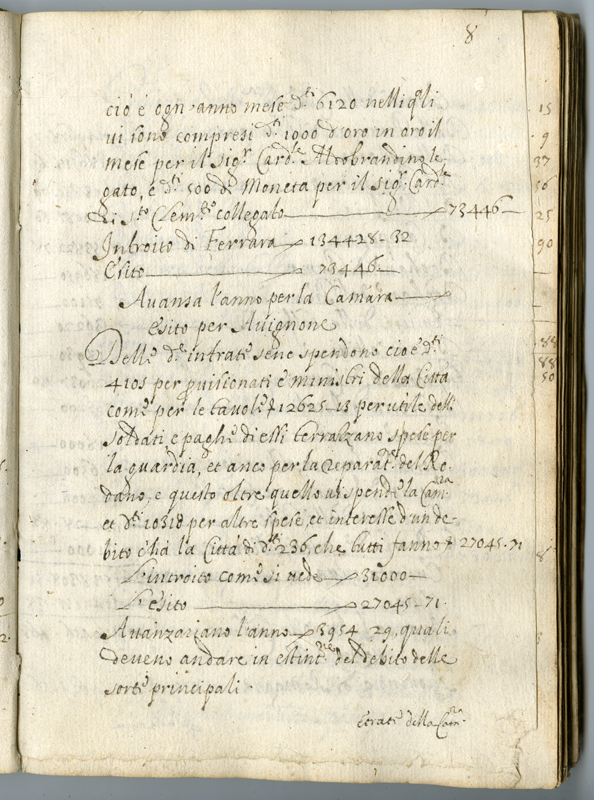 8
ciò è ogn'anno mese d.ti 6120 nelli q.li
ui sono compresi d.ti 1000 d'oro in oro il
mese per il sig.r Card.le Aldobrandino le-
gato, e d.ti 500 di Moneta per il sig.r Card.le
di S.to Clem.te collegato 73446
Introito di Ferrara 134428-32
Esito 73446
Auansa l'anno per la Camara
esito per Auignone
Delle d.e intrate se ne spendono cioè d.ti
4105 per prouisionati e ministri della Citta
come per le tauole 12625-15 per utile delli
soldati e paghe di essi terralzano spese per
la guardia, et anco per la reparat.ne del Ro-
dano, e questo oltre quello ui spende la Cam.ra
et d.ti 10318 per altre spese, et interesse d'un de-
bito c'hà la Città di d.ti 236, che tutti fanno 27045.71
L'introito come si uede 31000
L'esito 27045-71
Auanzariano l'anno 3954 29, quali
deueno andare in estint.ne del debito delle
sorte principali
etrate della Cam.ra
15
9
37
56
25
90
88
88
50
8
3
2.